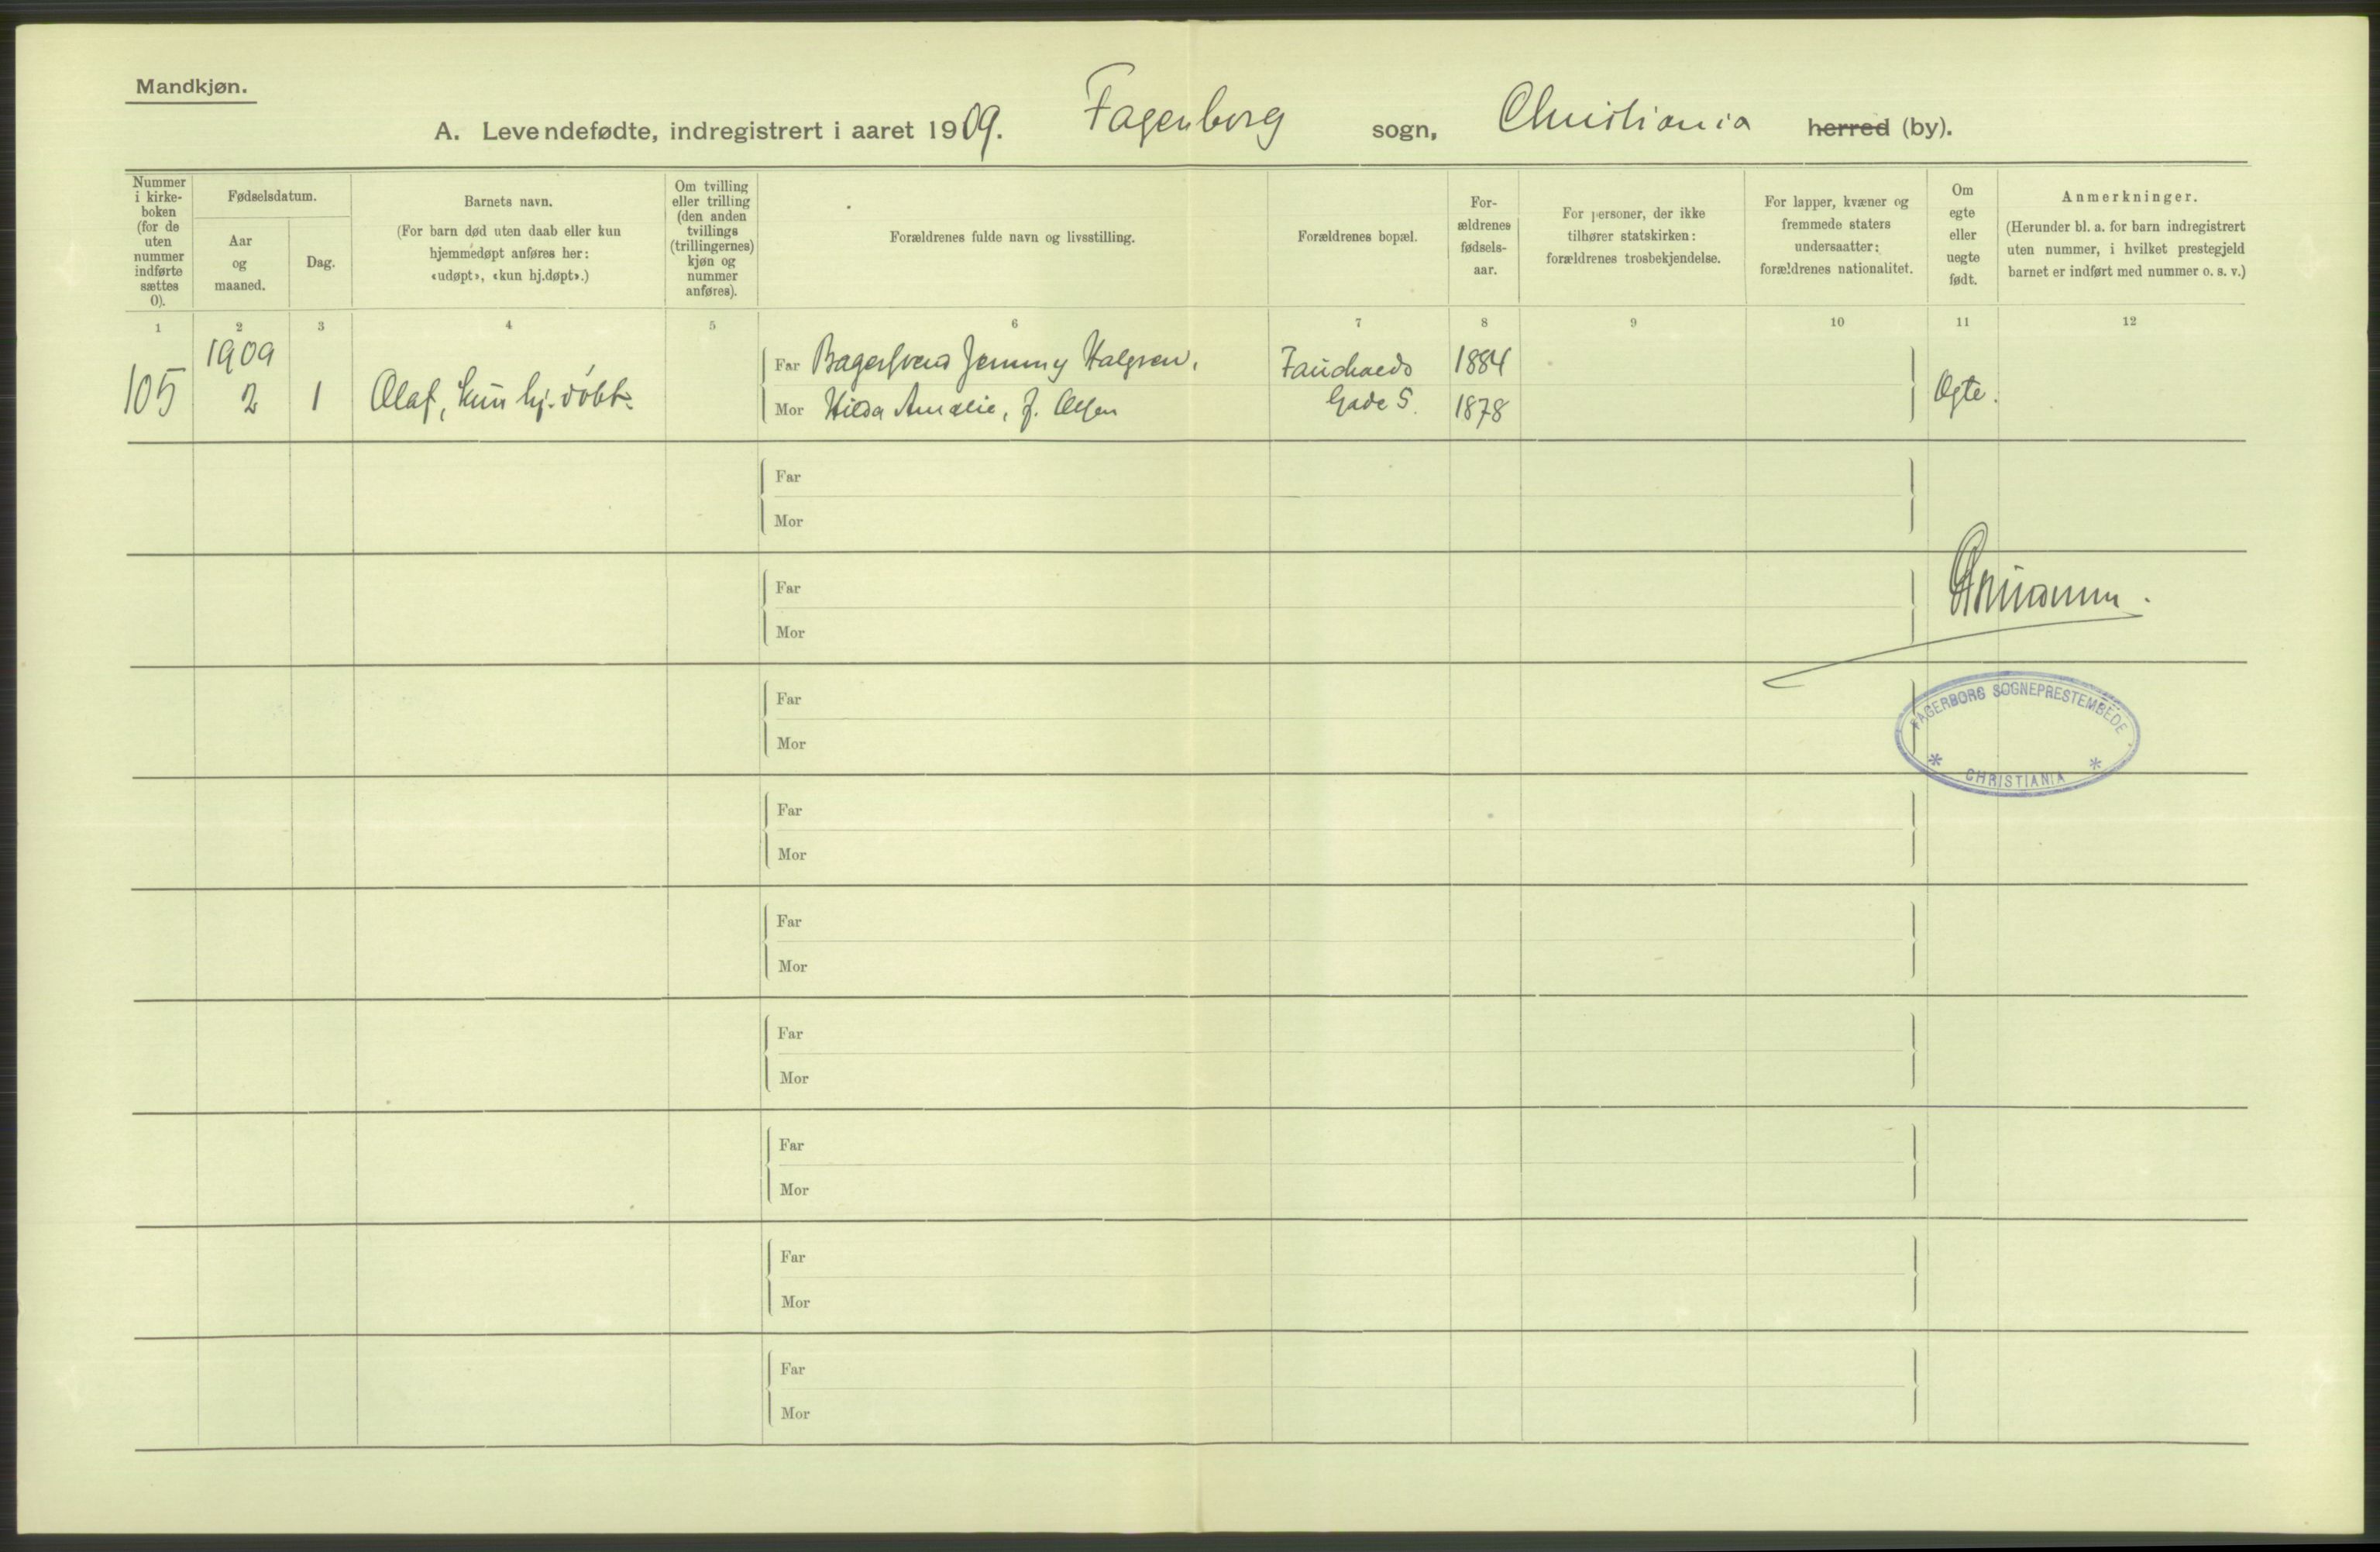 Mandkjøn.
A. Levendefødte, indregistrert i aaret 1909. Fagerborg sogn, Christiania herred (by).
Nummer i kirke-boken (for de uten nummer indførte sættes 0).
Fødselsdatum.
Aar og maaned.
Dag.
Barnets navn.
(For barn død uten daab eller kun
hjemmedøpt anføres her:
«udøpt», «kun hj.døpt».)
Om tvilling
eller trilling
(den anden
tvillings
(trillingernes)
kjøn og
nummer
anføres).
Forældrenes fulde navn og livsstilling.
Forældrenes bopæl.
For-
ældrenes
fødsels-
aar.
For personer, der ikke
tilhører statskirken:
forældrenes trosbekjendelse.
For lapper, kvæner og
fremmede staters
undersaatter:
forældrenes nationalitet.
Om
egte
eller
uegte
født.
Anmerkninger.
(Herunder bl. a. for barn indregistrert
uten nummer, i hvilket prestegjeld
barnet er indført med nummer o. s. v.)
1 2 3 4 5 6 7 8 9 10 11 12
1909
105 2 1 Olaf, kun hj. döbt.
Far Bagersvend Jemmy Halgren. 1884
Mor Hilda Amalie, f. Olsen Gade 5. 1878
Egte.
Far
Mor
Far
Mor
Far
Mor
FAGERBORG SOGNEPRESTEMBEDE
* CHRISTIANIA *
Far
Mor
Far
Mor
Far
Mor
Far
Mor
Far
Mor
Far
Mor